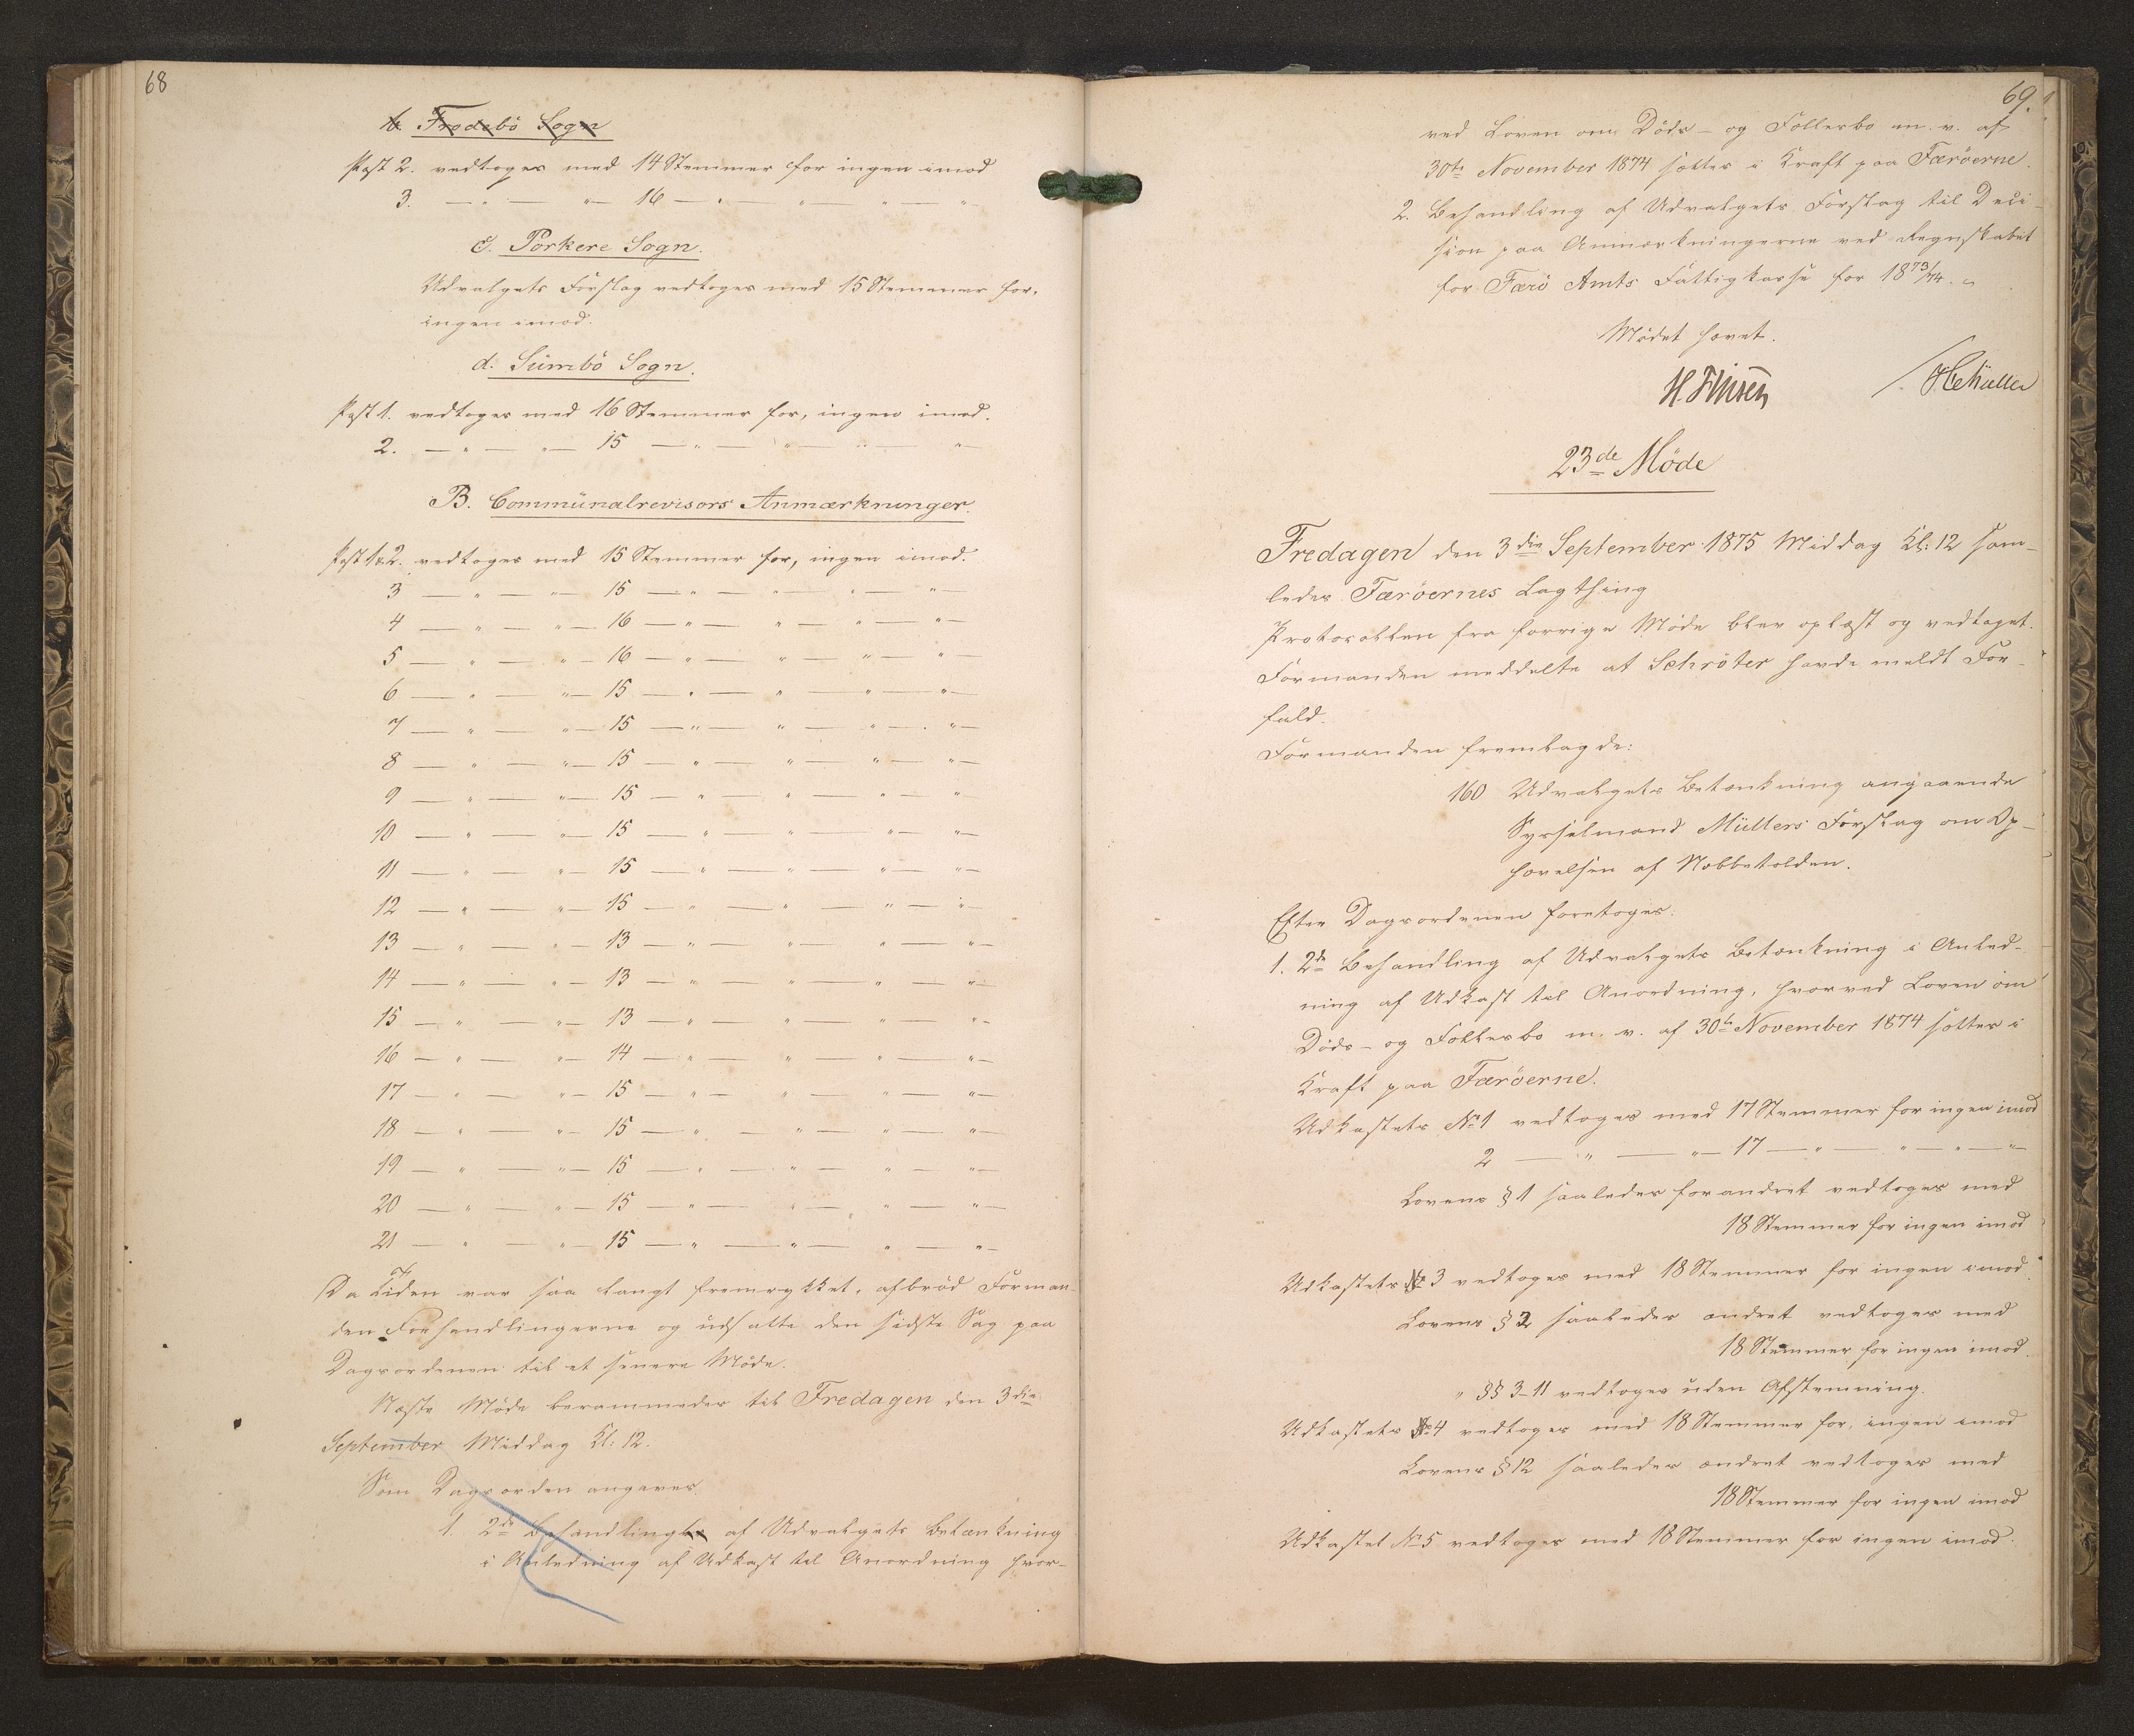 68
b. Frodebö Sogn
Post 2. vedtoges med 14 Stemmer for ingen imod
3. — " — " — 16 — " — " — " — "
c. Porkere Sogn.
Udvalgets Forslag vedtoges med 15 Stemmer for,
ingen imod.
d. Sumbö Sogn.
Post 1. vedtoges med 16 Stemmer for, ingen imod.
2. — " — " — 15 — " — " — " — "
B. Communalrevisors Anmærkninger.
Post 1&2. vedtoges med 15 Stemmer for, ingen imod.
3 — " — " — 15 — " — " — " — " —
4 — " — " — 16 — " — " — " — " —
5 — " — " — 16 — " — " — " — " —
6 — " — " — 15 — " — " — " — " —
7 — " — " — 15 — " — " — " — " —
8 — " — " — 15 — " — " — " — " —
9 — " — " — 15 — " — " — " — " —
10 — " — " — 15 — " — " — " — " —
11 — " — " — 15 — " — " — " — " —
12 — " — " — 15 — " — " — " — " —
13 — " — " — 13 — " — " — " — " —
14 — " — " — 13 — " — " — " — " —
15 — " — " — 13 — " — " — " — " —
16 — " — " — 14 — " — " — " — " —
17 — " — " — 15 — " — " — " — " —
18 — " — " — 15 — " — " — " — " —
19 — " — " — 15 — " — " — " — " —
20 — " — " — 15 — " — " — " — " —
21 — " — " — 15 — " — " — " — " —
Da Tiden var saa langt fremrykket, afbröd Forman-
den Forhandlingerne og udsatte den sidste Sag paa
Dagsordenen til et senere Möde.
Næste Möde berammedes til Fredagen den 3die
September Middag Kl: 12.
Som Dagsorden angaves
1. 2de Behandling af Udvalgets Betænkning
i Anledning af Udkast til Anordning hvor-
69.
ved Loven om Döds- og Fællesbo m. v. af
30te November 1874 sættes i Kraft paa Færöerne.
2. Behandling af Udvalgets Forslag til Deci-
sion paa Anmærkningerne ved Regnskabet
for Færö Amts Fattigkasse for 1873/74.
Mödet hævet.
H. Finsen / HCMüller
23de Möde
Fredagen den 3die September 1875 Middag Kl: 12 sam-
ledes Færöernes Lagthing
Protocollen fra forrige Möde blev oplæst og vedtaget.
Formanden meddelte at Schröter havde meldt For-
fald.
Formanden fremlagde:
160 Udvalgets Betænkning angaaende
Sysselmand Müllers Forslag om Op-
hævelsen af Næbbetolden.
Efter Dagsordenen foretoges:
1. 2de Behandling af Udvalgets Betænkning i Anled-
ning af Udkast til Anordning, hvorved Loven om
Döds- og Fællesbo m. v. af 30te November 1874 sættes i
Kraft paa Færöerne.
Udkastets No 1 vedtoges med 17 Stemmer for ingen imod
2 — " — " — 17 — " — " — " — "
Lovens § 1 saaledes forandret vedtoges med
18 Stemmer for ingen imod
Udkastets No 3 vedtoges med 18 Stemmer for ingen imod.
Lovens § 2 saaledes ændret vedtoges med
18 Stemmer for ingen imod.
" §§ 3-11 vedtoges uden Afstemning.
Udkastets No 4 vedtoges med 18 Stemmer for, ingen imod
Lovens § 12 saaledes ændret vedtoges med
18 Stemmer for ingen imod
Udkastet No 5 vedtoges med 18 Stemmer for ingen imod.